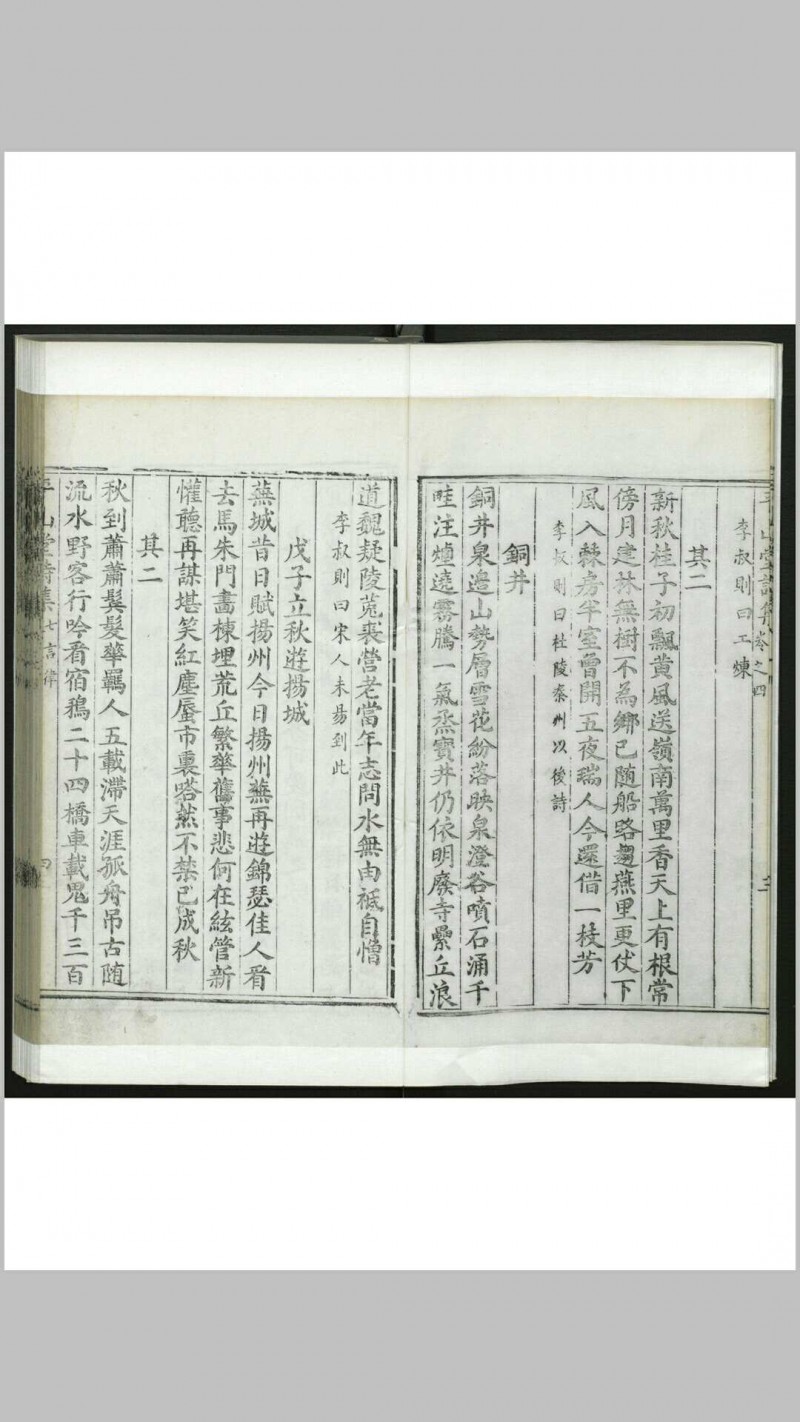 平山堂詩集卷之四 三
李叔則曰工煉
其二
新秋桂子初飄黃風送嶺南萬里香天上有根常
傍月建林無樹不為鄉已随船路趨燕里更仗下
風入棘房半室曾開五夜瑞人今還借一枝芳
李叔則曰杜陵秦州以後詩
銅井
銅井泉邉山勢層雪花紛落映泉澄谷噴石涌千
畦注煙遶霧騰一氣烝寳井仍依明廢寺纍丘浪
道魏疑陵菟裘營老當年志問水無由祗自憎
李叔則曰宋人未易到此
戊子立秋遊揚城
蕪城昔日賦揚州今日揚州蕪再遊錦瑟佳人看
去馬朱門畵棟埋荒丘繁華舊事悲何在絃管新
懽聽再謀堪笑紅塵蜃市裏嗒然不禁已成秋
其二
秋到蕭蕭鬂髮華羈人五載滯天涯孤舟吊古随
流水野客行吟看宿鴉二十四橋車載鬼千三百
平山堂詩集七言律 四